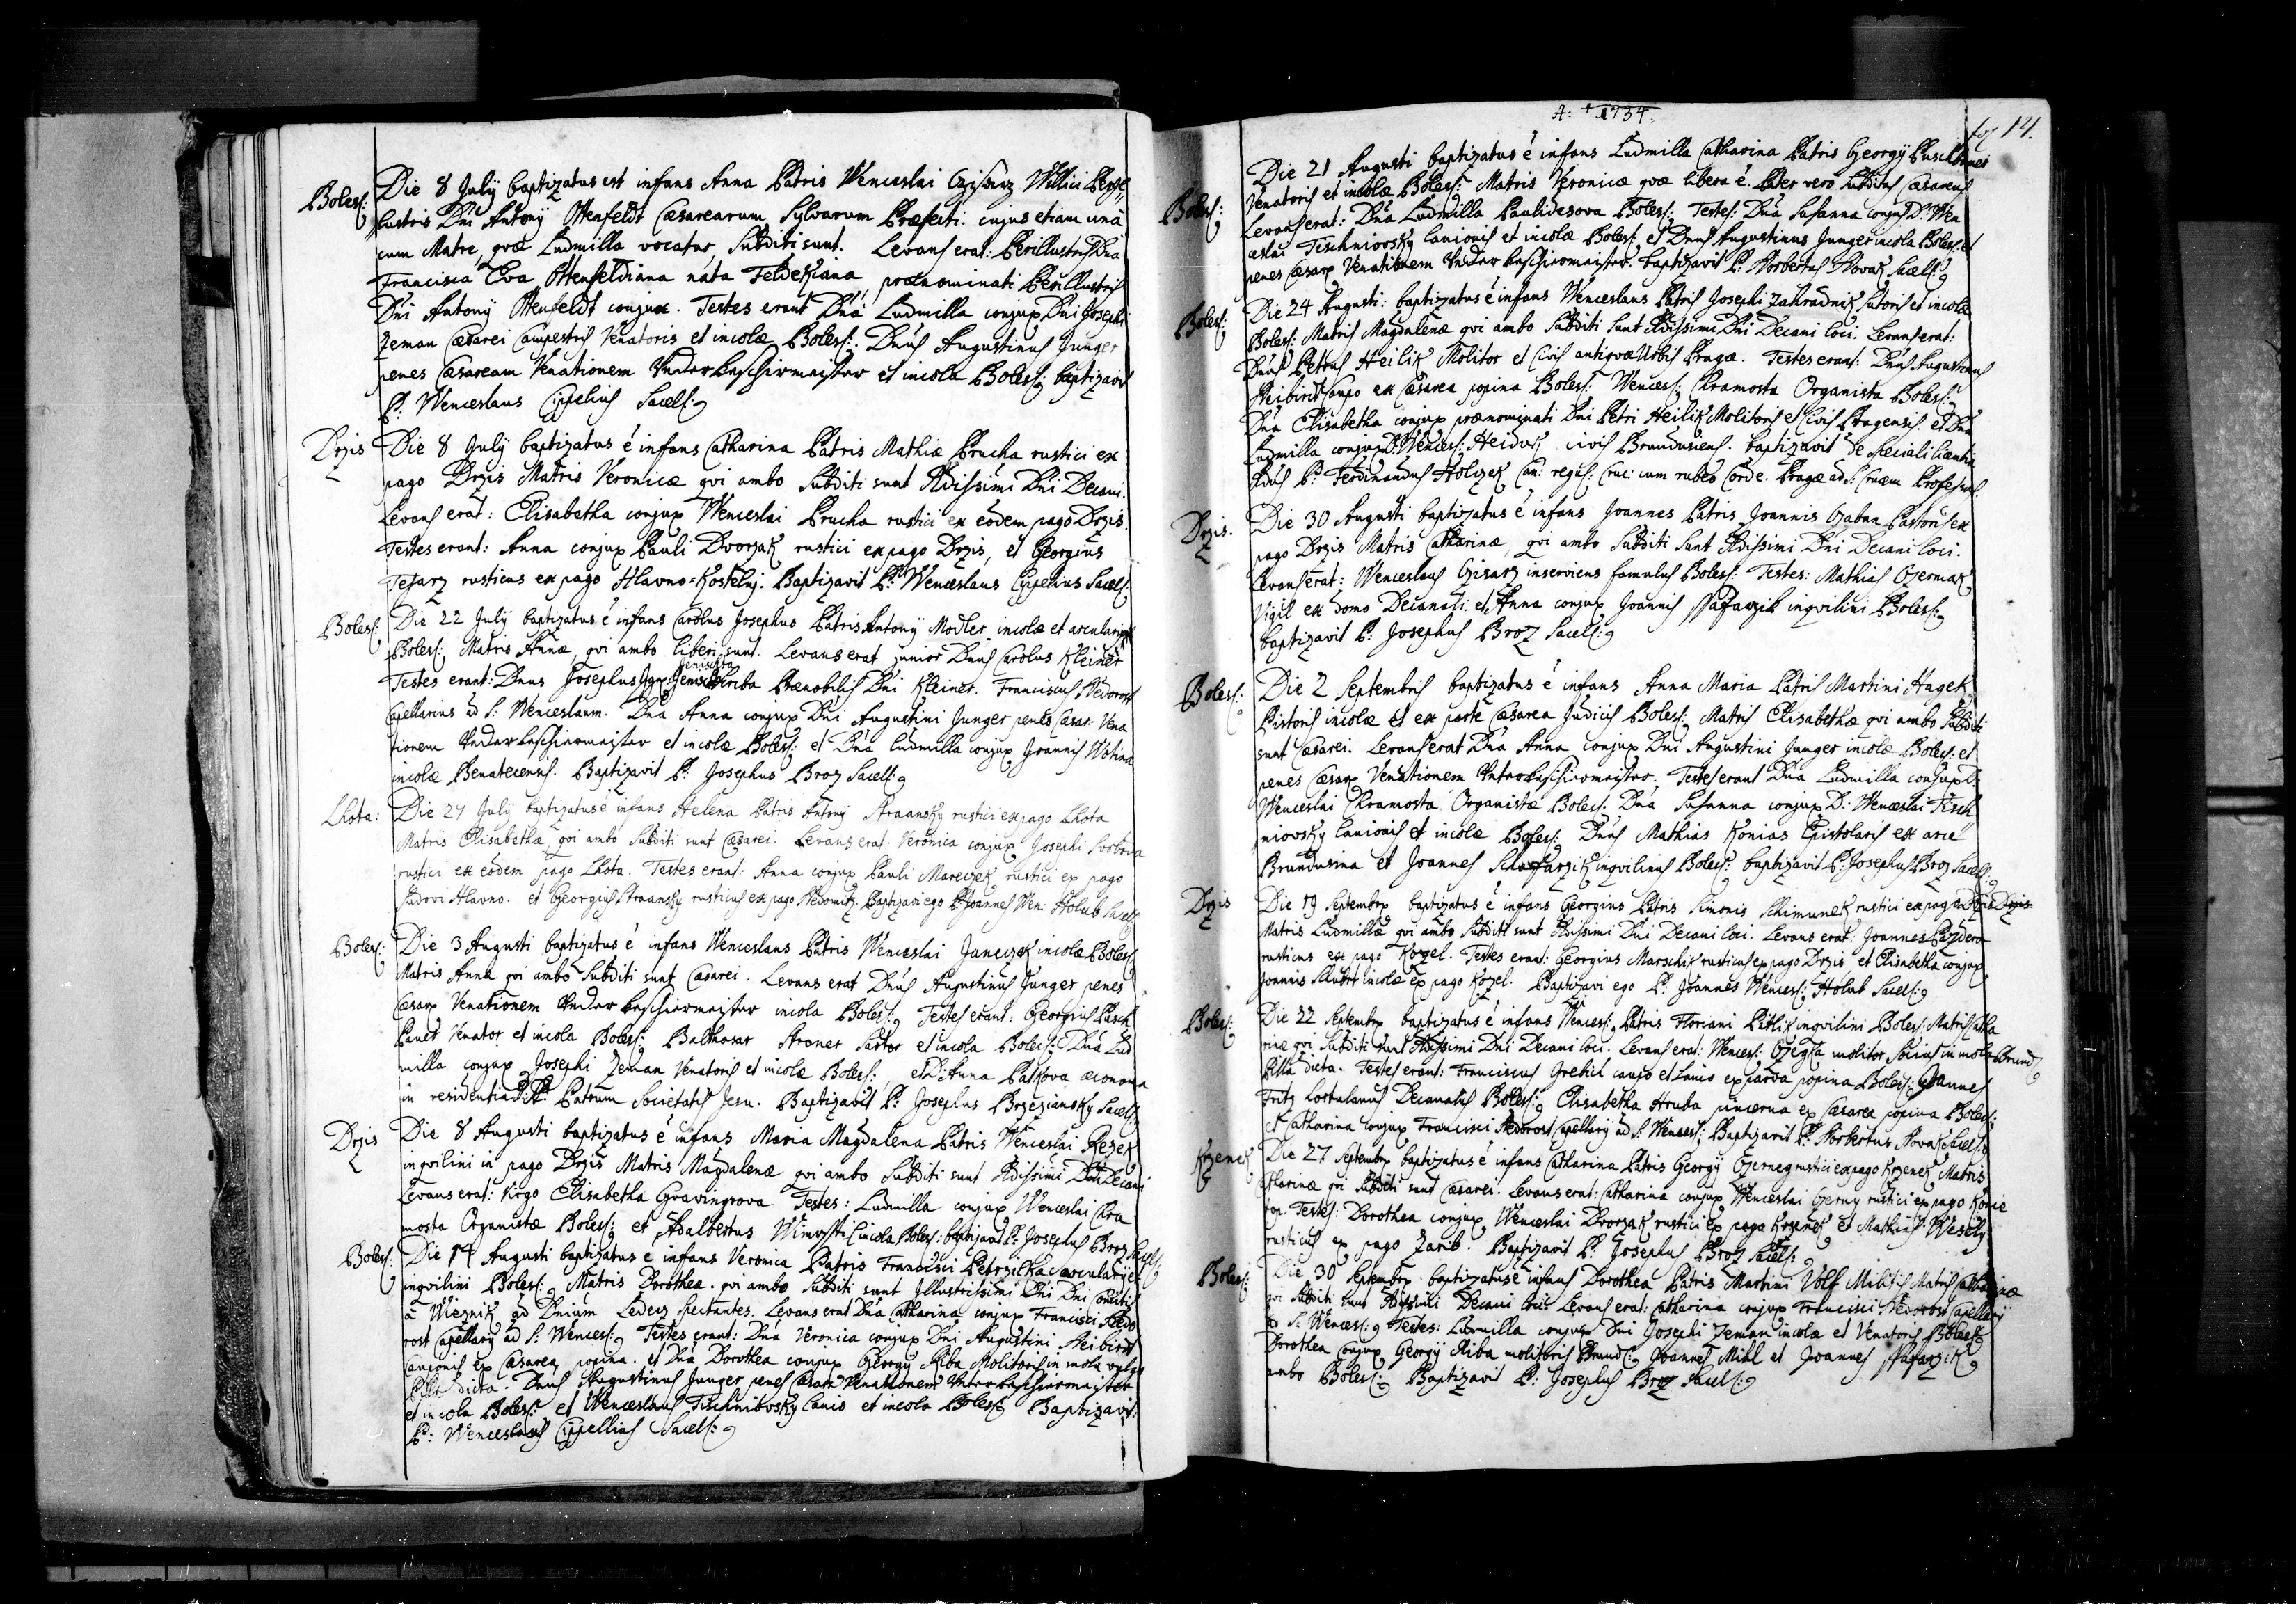 Boles:
Die 8 July baptizatus est infans Anna Patris Wenceslai Czisarz Villici Peril„
lustris Dni Antony Ottenfeldt Cæsarearum Sylvarum Præfecti. cujus etiam unà
cum Matre, qvæ Ludmilla vocatur, Subditi sunt. Levans erat: Perillustris Dna
Francisca Eva Ottenfeldiana nata Feldekiana, prænominati Perillustris
Dni Antony Ottenfeldt conjux. Testes erant Dna Ludmilla conjux Dni Josephi
Zeman Cæsarei Campestris Venatoris et incolæ Boles: Dnus Augustinus Junger
penes Cæsaream Venationem Underbeschirmaister et incola Boles: baptizavit
P: Wenceslaus Cippelius Sacell:
Drzis
Die 8 July baptizatus ē infans Catharina Patris Mathiæ Prucha rustici ex
pago Drzis Matris Veronicæ qvi ambo Subditi sunt Adissimi Dni Decani.
Levans erat: Elisabetha conjux Wenceslai Prucha rustici ex eodem pago Drzis.
Testes erant: Anna conjux Pauli Dvorzak rustici ex pago Drzis, et Georgius
Tesarz rusticus ex pago Hlavno=Kostelny. Baptizavit P: Wenceslaus Cippelius Sacell:
Boles:
Die 22 July baptizatus ē infans Carolus Josephus Patris Antony Modler incolæ et arcularij
Boles: Matris Annæ, qvi ambo liberi sunt. Levans erat junior Dnus Carolus Kleiner
Testes erant: Dnus Josephus scriba Prænobilis Dni Kleiner. Franciscus Nedorost
Capellarius ad S: Wenceslaum. Dna Anna conjux Dni Augustini Junger penes Cæsar: Vena
tionem Underbeschirmaister et incolæ Boles: et Dna Ludmilla conjux Joannis Wotina
incolæ Benatecensis. Baptizavit P: Josephus Broz Sacell:
Lhota:
Die 27 July baptizatus ē infans Helena Patris Antony Straansky rustici ex pago Lhota
Matris Elisabethæ, qvi ambo Subditi sunt Cæsarei. Levans erat: Veronica conjux Josephi Svoboda
rustici ex eodem pago Lhota. Testes erant: Anna conjux Pauli Mareczek rustici ex pago
Sudovi Hlavno. et Georgius Straansky rusticus ex pago Nedomitz. Baptizavi ego P: Joannes Wen: Holub Sacell:
Boles:
Die 3 Augusti baptizatus ē infans Wenceslaus Patris Wenceslai Janeczek incolæ Boles:
Matris Anna qvi ambo Subditi sunt Cæsarei. Levans erat Dnus Augustinus Junger penes
Cæsar Venationem Underbeschirmaister incola Boles: Testes erant: Georgius Pusch
Pauer Venator et incola Boles: Balthasar Straner Sartor et incola Boles: Dna Lud
milla conjux Josephi Zeman Venatoris et incolæ Boles:, et D: Anna Patkova œconoma
in residentia PP: Patrum Societatis Jesu. Baptizavit P: Josephus Brzeziansky Sacell:
Drzis
Die 8 Augusti baptizatus ē infans Maria Magdalena Patris Wenceslai Rezek
inqvilini in pago Drzis Matris Magdalenæ qvi ambo Subditi sunt Adissimi Dni Decani
Levans erat: Virgo Elisabetha Gravingrova Testes: Ludmilla conjux Wenceslai Chra
mosta Organistæ Boles: et Adalbertus incola Boles: baptizavit P: Josephus Broz Sacell:
Boles:
Die 14 Augusti baptizatus ē infans Veronica Patris Francisci Petrzilka arcularij et
inqvilini Boles: Matris Dorothea. qvi ambo Subditi sunt Illustrissimi Dni Dni Comitis
à Wieznik ad Dnium Ledecz Spectantes. Levans erat Dna Catharina conjux Francisci Nedo
rost Capellary ad S: Wences: Testes erant: Dna Veronica conjux Dni Augustini Neibirdt
Cauponis ex Cæsarea popina. et Dna Dorothea conjux Georgy Riba Molitoris in mola vulgo
dicta. Dnus Augustinus Junger penes Cæsar Venationem Underbeschirmaister
et incola Boles: et Wenceslaus Tischniovsky Lanio et incola Boles: Baptizavit
P: Wenceslaus Cippellius Sacell:
A: 1734.
fol 14.
Boles:
Die 21 Augusti baptizatus ē infans Ludmilla Catharina Patris Georgÿ Puschpauer
Venatoris et incolæ Boles: Matris Veronicæ qvæ libera ē. Pater vero Subditus Cæsareus
Levans erat: Dna Ludmilla Paulidesova Boles: Testes: Dna Susanna conjux D: Wen
ceslai Tischniovsky lanionis et incolæ Boles: et Dnus Augustinus Junger incola Boles: et
penes Cæsar Venationem Underbeschiermaister. baptizavit P: Norbertus Novak Sacell:
Boles:
Die 24 Augusti: baptizatus ē infans Wenceslaus Patris Josephi Zahradnik Sutoris et incolæ
Boles: Matris Magdalenæ qvi ambo Subditi sunt Adissimi Dni Decani loci. Levans erat:
Dnus Petrus Heilik Molitor et Civis antiqvæ Urbis Pragæ. Testes erant: Dnus Augustinus
Neibirdt Caupo ex Cæsarea popina Boles: Wences: Chramosta Organista Boles:
Dna Elisabetha conjux prænominati Dni Petri Heilik Molitoris et Civis Pragensis. et Dna
Ludmilla conjux D: Wences: Heiduk civis Brundusiens. baptizavit de speciali licentia
Adus P: Ferdinandus Holczek Can: regul: Cruc: cum rubeo Corde. Pragæ ad S: Crucem Professus.
Drzis.
Die 30 Augusti baptizatus ē infans Joannes Patris Joannis Czaban Pastoris ex
pago Drzis Matris Catharinæ, qvi ambo Subditi sunt Adissimi Dni Decani loci.
Levans erat: Wenceslaus Czisarz inserviens famulus Boles: Testes: Mathias Czermak
Vigil ex domo Decanali. et Anna conjux Joannis Ssafarzik inqvilini Boles:
baptizavit P: Josephus Broz Sacell:
Boles:
Die 2 Septembris baptizatus ē infans Anna Maria Patris Martini Hagek
Pistoris incolæ et ex parte Cæsarea Judicis Boles: Matris Elisabethæ qvi ambo Subditi
sunt Cæsarei. Levans erat Dna Anna conjux Dni Augustini Junger incolæ Boles: et
penes Cæsar Venationem Unterbeschirmaister. Testes erant Dna Ludmilla conjux D:
Wenceslai Chramosta Organistæ Boles: Dna Susanna conjux D: Wenceslai Tisch
niovsky lanionis et incolæ Boles: Dnus Mathias Konias Epistolaris ex arce
Brundusina et Joannes Schaffarzik inqvilinus Boles: baptizavit P: Josephus Broz Sacell:
Drzis
Die 19 Septembr baptizatus ē infans Georgius Patris Simonis Schimunek rustici ex pago Drzis
Matris Ludmillæ qvi ambo Subditi sunt Adissimi Dni Decani loci. Levans erat: Joannes Pazdera
rusticus ex pago Kozel. Testes erant: Georgius Marschik rusticus ex pago Drzis et Elisabetha conjux
Joannis Schubrt incolæ ex pago Kozel. Baptizavi ego P: Joannes Wences: Holub Sacell:
Boles:
Die 22 Septembr baptizatus ē infans Wences: Patris Floriani Pitlik inqvilini Boles: Matris Catha
rinæ qvi Subditi sunt Adissimi Dni Decani loci. Levans erat: Wences: Czegka molitor Socius in mola Brand:
Pilla dicta. Testes erant: Franciscus Grebicl caupo et Lanio ex parva popina Boles: Joannes
Fritz Hortulanus Decanalis Boles: Elisabetha Hruba pincerna ex Cæsarea popina Boles:
et Catharina conjux Francisci Nedorost Capellary ad S: Wences: Baptizavit P: Norbertus Novak Sacell:
Krzenek
Die 27 Septembr baptizatus ē infans Catharina Patris Georgÿ Czerneg rustici ex pago Krzenek Matris
Catharinæ qvi Subditi sunt Cæsarei. Levans erat: Catharina conjux Wenceslai Czerny rustici ex pago Konie
top. Testes: Dorothea conjux Wenceslai Dvorzak rustici ex pago Krzenek et Mathias Wesely
rusticus ex pago Zarib. Baptizavit P: Josephus Broz Sacell:
Boles:
Die 30 Septembr baptizatus ē infans Dorothea Patris Martini Volf Militis Matris Catharinæ
qvi Subditi sunt Adissimi Decani loci. Levans erat: Catharina conjux Francisci Nedorost Capellary
ad S: Wences: Testes: Ludmilla conjux Dni Josephi Zeman incolæ et Venatoris Boles:
Dorothea conjux Georgÿ Riba molitoris Brund: Joannes Mihl et Joannes Ssafarzik
ambo Boles: Baptizavit P: Josephus Broz Sacell: